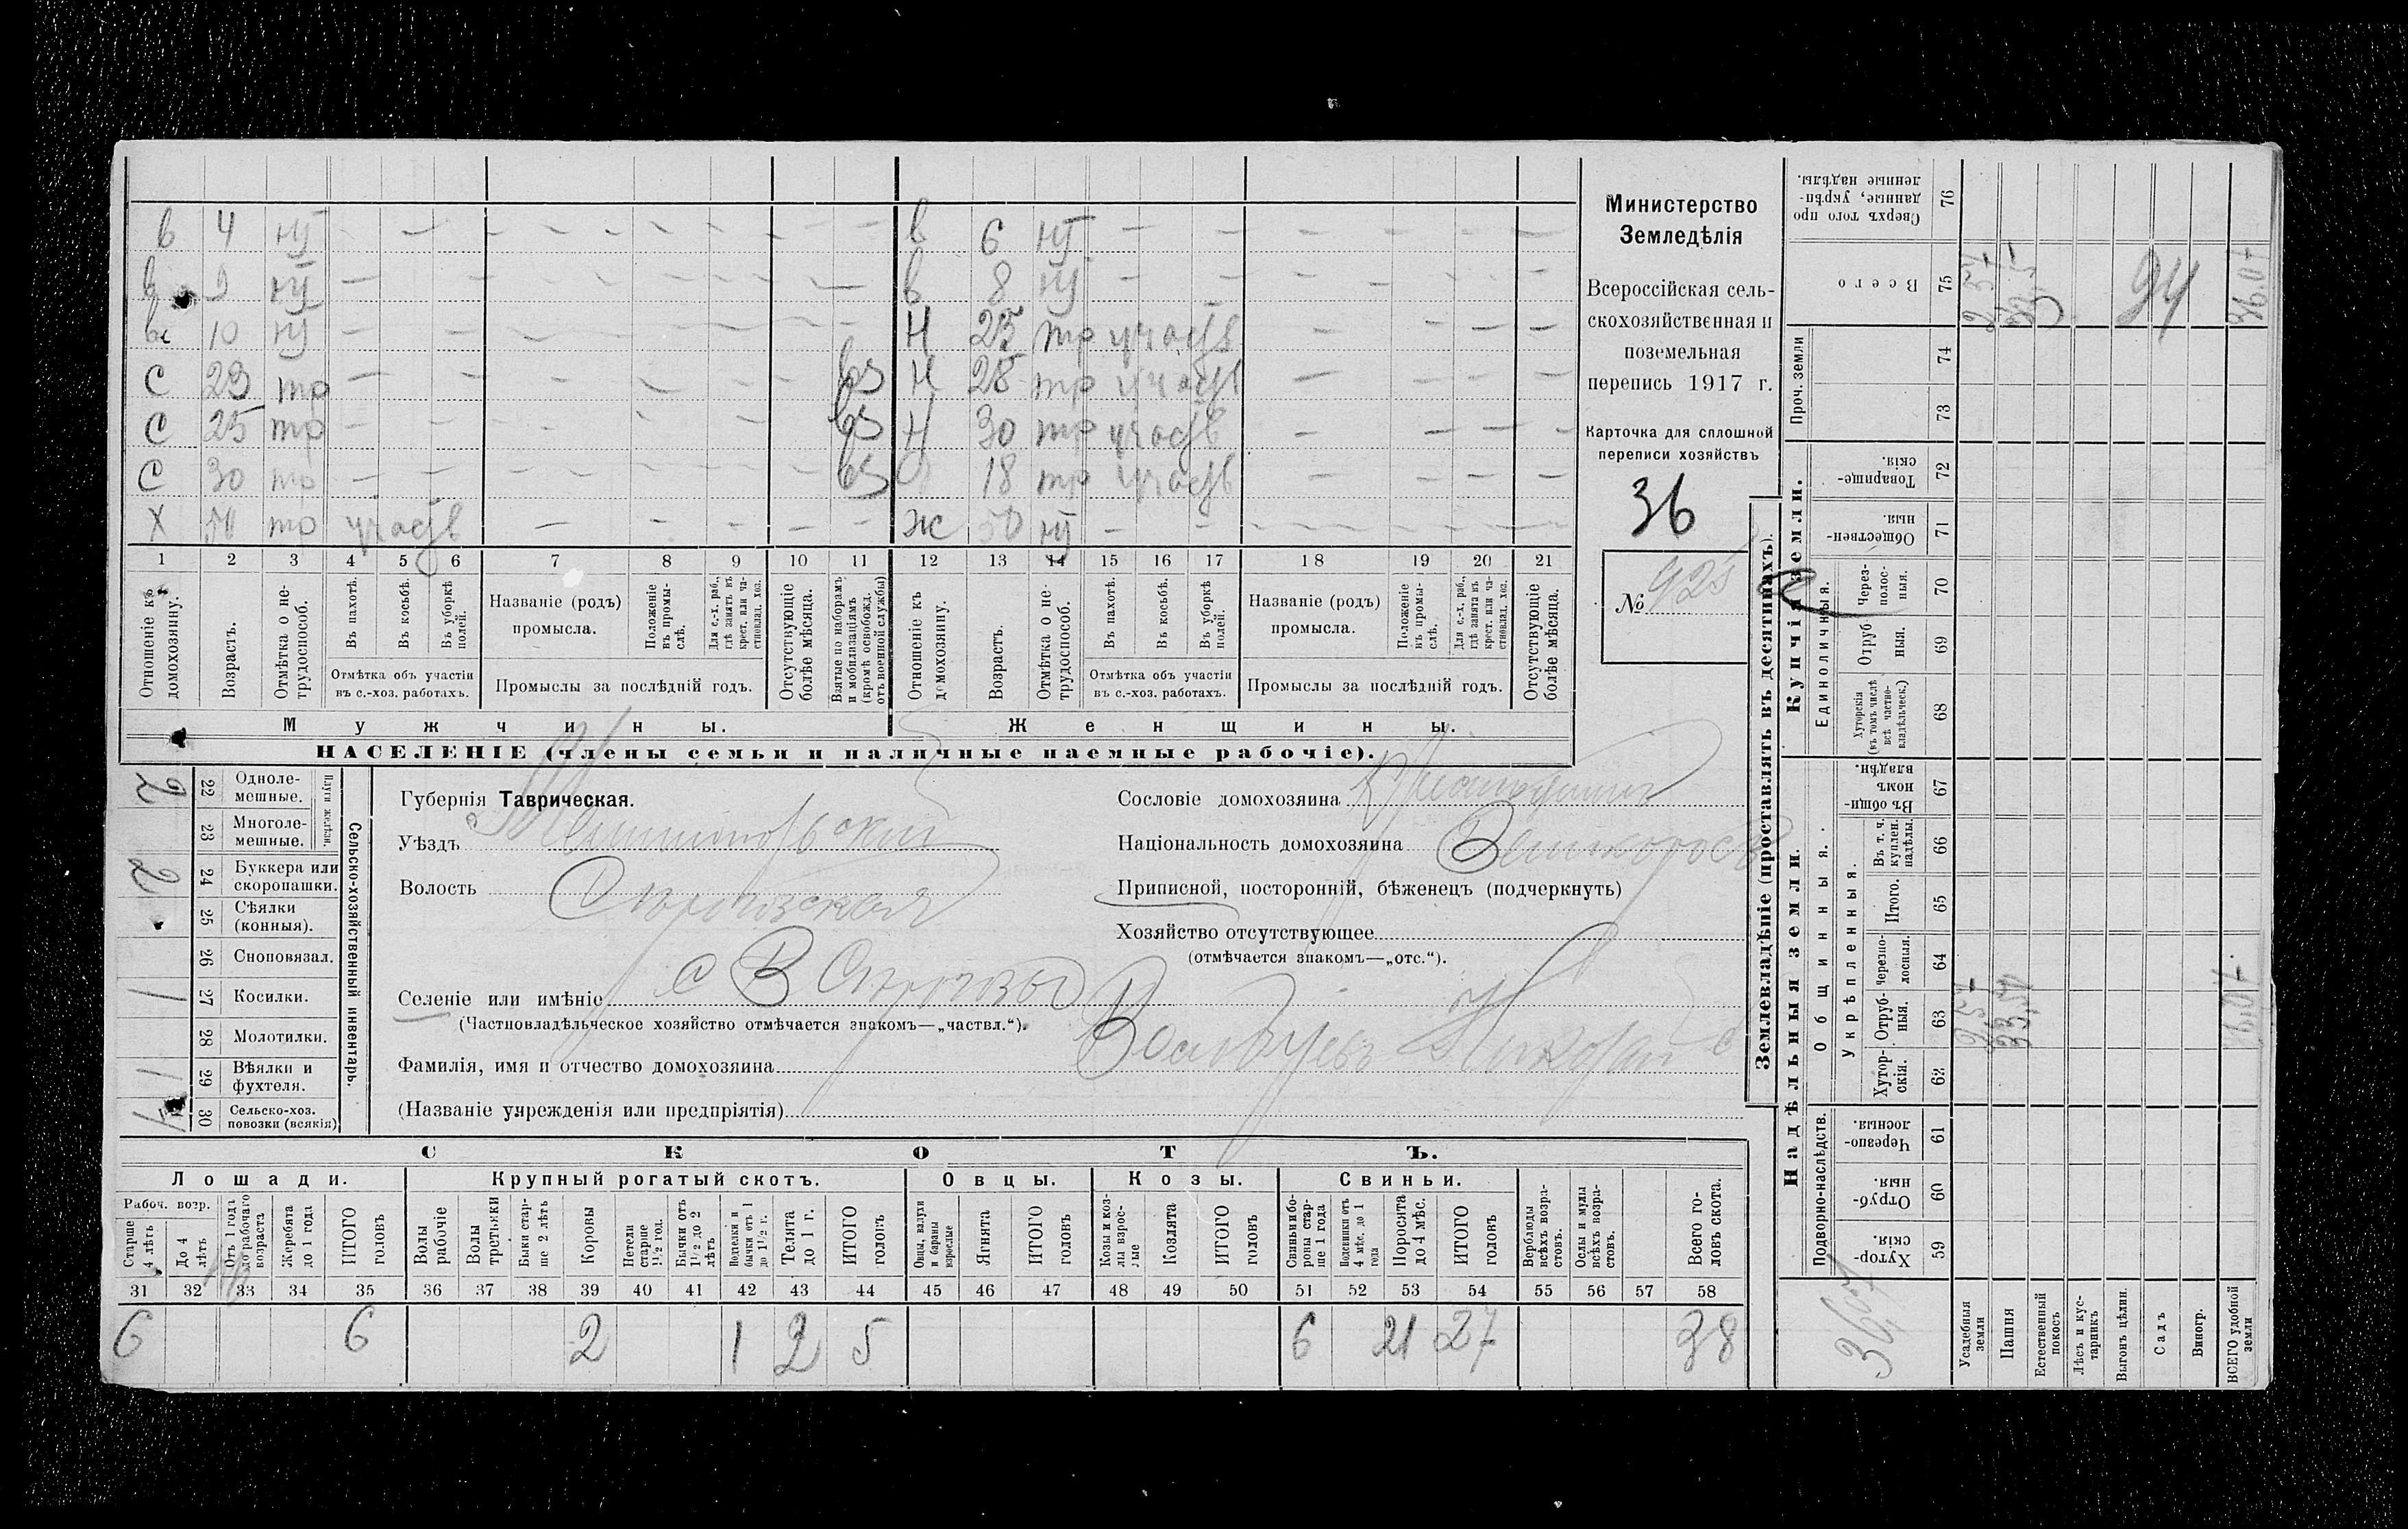 в 4 нт — — — — — — — — в 6 нт — — — — — — —
в 9 нт — — — — — — — — в 8 нт — — — — — — —
вс 10 нт — — — — — — — — Н 25 тр участв — — — —
С 23 тр — — — — — — — вз Н 28 тр участв — — — —
С 25 тр — — — — — — — вз Н 30 тр участв — — — —
С 30 тр — — — — — — — вз 18 тр участв — — — —
Х 50 тр участв — — — — — ж 50 нт — — — — — — —
1 2 3 4 5 6 7 8 9 10 11 12 13 14 15 16 17 18 19 20 21
Отношеніе къ домохозяину.
Возрастъ.
Отмѣтка о не-трудоспособ.
Въ пахотѣ.
Въ косьбѣ.
Въ уборкѣ полей.
Отмѣтка объ участіи въ с.-хоз. работахъ.
Названіе (родъ) промысла.
Положеніе въ промы-слѣ.
Для с.-х. раб., гдѣ занятъ въ крест. или ча-стновлад. хоз.
Промыслы за послѣдній годъ.
Отсутствующіе болѣе мѣсяца.
Взятые по наборамъ и мобилизаціямъ (кромѣ освобожд. отъ военной службы)
Отношеніе къ домохозяину.
Возрастъ.
Отмѣтка о не-трудоспособ.
Въ пахотѣ.
Въ косьбѣ.
Въ уборкѣ полей.
Отмѣтка объ участіи въ с.-хоз. работахъ.
Названіе (родъ) промысла.
Положеніе въ промы-слѣ.
Для с.-х. раб., гдѣ занята въ крест. или ча-стновлад. хоз.
Промыслы за послѣдній годъ.
Отсутствующіе болѣе мѣсяца.
Мужчины.
Женщины.
НАСЕЛЕНІЕ (члены семьи и наличные наемные рабочіе).
Министерство
Земледѣлія
Всероссійская сель-
скохозяйственная и
поземельная
перепись 1917 г.
Карточка для сплошной
переписи хозяйствъ
36
№ 925
2 22 Одноле-мешные.
23 Многоле-мешные.
Плуги желѣзн.
2 24 Буккера или скоропашки.
25 Сѣялки (конныя).
26 Сноповязал.
1 27 Косилки.
28 Молотилки.
1 29 Вѣялки и фухтеля.
30 Сельско-хоз. повозки (всякія)
Сельско-хозяйственный инвентарь.
Губернія Таврическая.
Уѣздъ Мелитопольский
Волость
Селеніе или имѣніе с В
(Частновладѣльческое хозяйство отмѣчается знакомъ—„частвл.“).
Фамилія, имя и отчество домохозяина Николай
(Названіе учрежденія или предпріятія)
Сословіе домохозяина Крестьянин
Національность домохозяина Великоросъ
Приписной, посторонній, бѣженецъ (подчеркнуть)
Хозяйство отсутствующее
(отмѣчается знакомъ—„отс.“).
СКОТЪ.
Лошади. Крупный рогатый скотъ. Овцы. Козы. Свиньи.
Рабоч. возр.
Старше 4 лѣтъ
До 4 лѣтъ
Отъ 1 года до рабочаго возраста
Жеребята до 1 года
ИТОГО головъ
Волы рабочіе
Волы третьяки
Быки стар-ше 2 лѣтъ
Коровы
Нетели старше 1½ год.
Бычки отъ 1½ до 2 лѣтъ
Подтелки и бычки отъ 1 до 1½ г.
Телята до 1 г.
ИТОГО головъ
Овцы, валухи и бараны взрослые
Ягнята
ИТОГО головъ
Козы и коз-лы взрос-лые
Козлята
ИТОГО головъ
Свиньи и бо-ровы стар-ше 1 года
Подсвинки отъ 4 мѣс. до 1 года
Поросята до 4 мѣс.
ИТОГО головъ
Верблюды всѣхъ возра-стовъ.
Ослы и мулы всѣхъ возра-стовъ.
Всего го-ловъ скота.
31 32 33 34 35 36 37 38 39 40 41 42 43 44 45 46 47 48 49 50 51 52 53 54 55 56 57 58
6 6 2 1 2 5 6 21 27 38
Землевладѣніе (проставлять въ десятинахъ).
Купчія земли.
Надѣльныя земли.
Сверхъ того про-данные, укрѣп-ленные надѣлы. 76
Всего 75
Проч. земли 74 73
Товарище-скія. 72
Обществен-ныя. 71
Единоличныя.
Черезполос-ныя. 70
Отруб-ныя. 69
Хуторскія (въ томъ числѣ всѣ частно-владѣльческ.) 68
Общинныя.
Въ общин-номъ владѣн. 67
Укрѣпленныя.
Въ т. ч. куплен. надѣлы. 66
Итого. 65
Черезпо-лосныя. 64
Отруб-ныя. 63
Хутор-скія. 62
Подворно-наслѣдств.
Черезпо-лосныя. 61
Отруб-ныя. 60
Хутор-скія. 59
2,57
33,5
94
36.07
2,57
33,50
36,07
Усадебныя земли
Пашня
Естественный покосъ
Лѣсъ и кус-тарникъ
Выгонъ цѣлин.
Садъ
Виногр.
ВСЕГО удобной земли